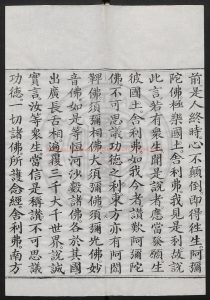 前是人終時心不顛倒即得往生阿彌
陀佛極樂國土舍利弗我見是利故說
此言若有衆生聞是說者應當發願生
彼國土舍利弗如我今者讚歎阿彌陀
佛不可思議功德之利東方亦有阿閦
鞞佛須彌相佛大須彌佛須彌光佛妙
音佛如是等恒河沙數諸佛各於其國
出廣長舌相遍覆三千大千世界說誠
實言汝等衆生當信是稱讚不可思議
功德一切諸佛所護念經舍利弗南方